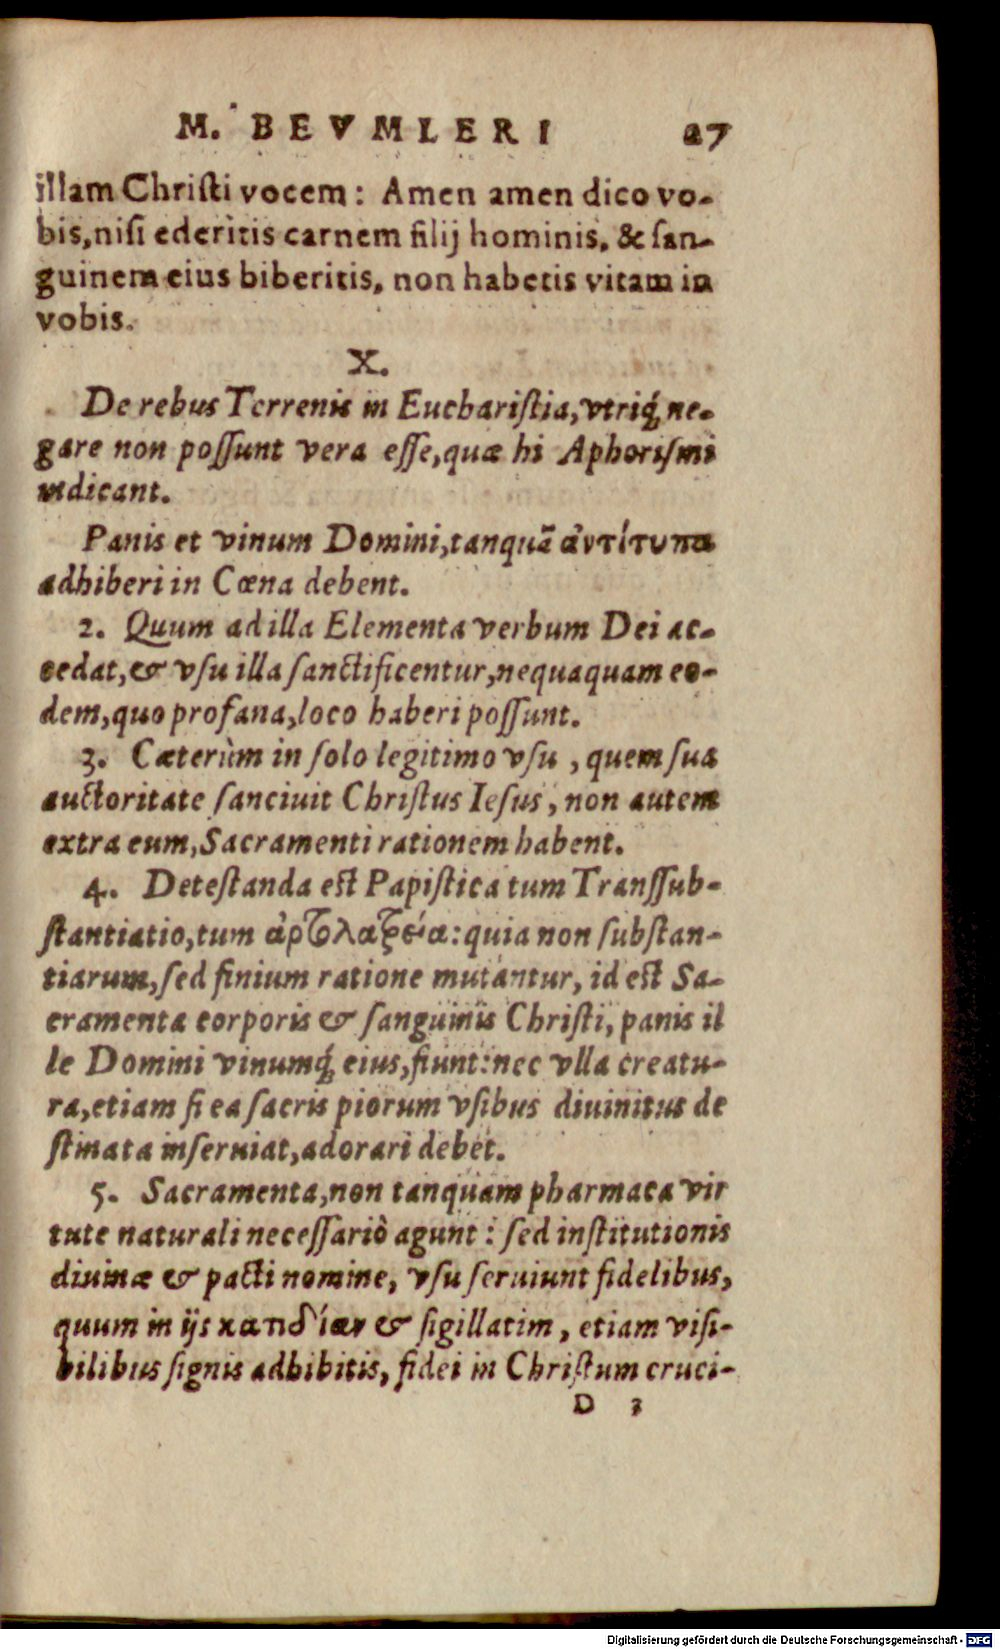 M. BEVMLERI 27
illam Chriſti vocem: Amen amen dico vo-
bis, niſi ederitis carnem filij hominis, & ſan-
guinem eius biberitis, non habetis vitam in
vobis.
X.
De rebus Terrenis in Euchariſtia, vtriq́; ne-
gare non poſſunt vera eſſe, quæ hi Aphoriſmi
indicant.
Panis et vinum Domini, tanquã ἀντίτυπα
adhiberi in Cœna debent.
2. Quum ad illa Elementa verbum Dei ac-
cedat, & vſu illa ſanctificentur, nequaquam eo-
dem, quo profana, loco haberi poſſunt.
3. Cæterùm in ſolo legitimo vſu, quem ſua
auctoritate ſanciuit Chriſtus Ieſus, non autem
extra eum, Sacramenti rationem habent.
4. Deteſtanda eſt Papiſtica tum Tranſſub-
ſtantiatio, tum ἀρτολατρεία: quia non ſubſtan-
tiarum, ſed finium ratione mutantur, id eſt Sa-
cramenta corporis & ſanguinis Chriſti, panis il
le Domini vinumq́; eius, fiunt: nec vlla creatu-
ra, etiam ſi ea ſacris piorum vſibus diuinitus de
ſtinata inſeruiat, adorari debet.
5. Sacramenta, non tanquam pharmaca vir
tute naturali neceſſariò agunt: ſed inſtitutionis
diuinæ & pacti nomine, vſu ſeruiunt fidelibus,
quum in ijs & ſigillatim, etiam viſi-
bilibus ſignis adhibitis, fidei in Chriſtum cruci-
D 3
Digitalisierung gefördert durch die Deutsche Forschungsgemeinschaft - DFG